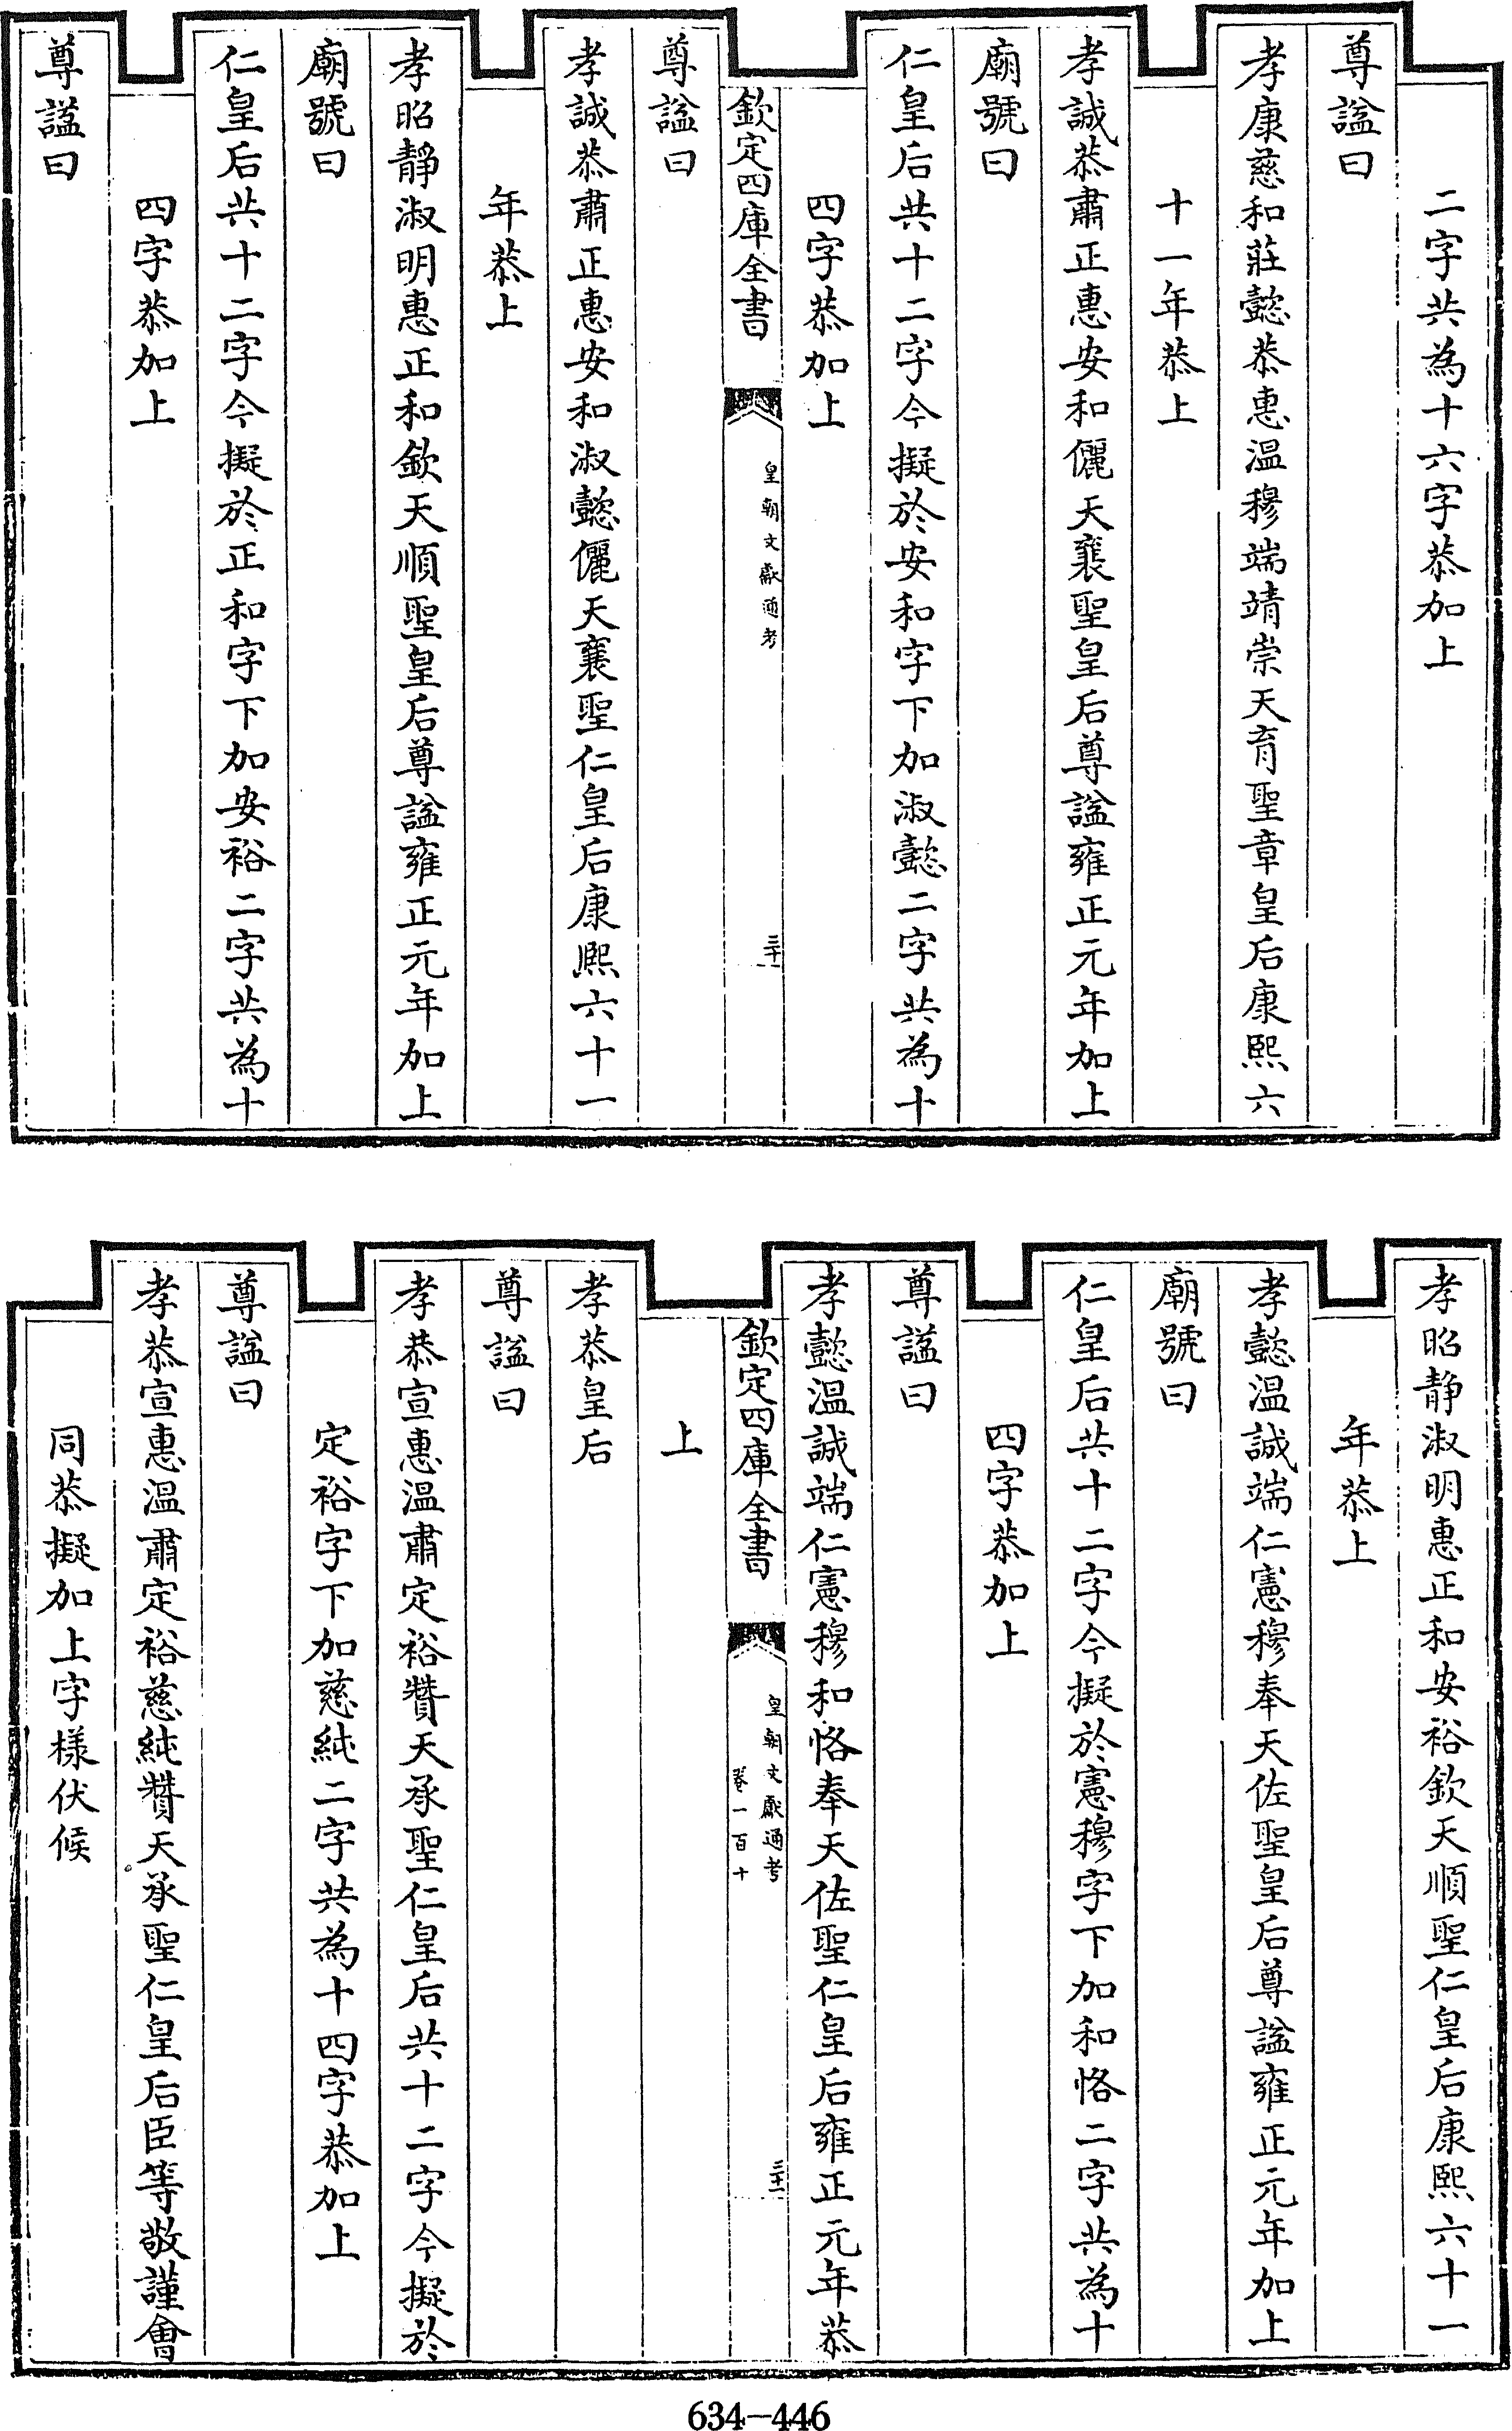 二字共為十六字恭加上
尊諡曰
孝康慈和莊懿恭惠溫穆端靖崇天育聖章皇后康熙六
十一年恭上
孝誠恭肅正惠安和儷天襄聖皇后尊諡雍正元年加上
廟號曰
仁皇后共十二字今擬於安和字下加淑懿二字共為十
四字恭加上
欽定四庫全書
皇朝文獻通考
三十
尊諡曰
孝誠恭肅正惠安和淑懿儷天襄聖仁皇后康熙六十一
年恭上
孝昭靜淑明惠正和欽天順聖皇后尊諡雍正元年加上
廟號曰
仁皇后共十二字今擬於正和字下加安裕二字共為十
四字恭加上
尊諡曰
孝昭靜淑明惠正和安裕欽天順聖仁皇后康熙六十一
年恭上
孝懿溫誠端仁憲穆奉天佐聖皇后尊諡雍正元年加上
廟號曰
仁皇后共十二字今擬於憲穆字下加和恪二字共為十
四字恭加上
尊諡曰
孝懿溫誠端仁憲穆和恪奉天佐聖仁皇后雍正元年恭
欽定四庫全書
皇朝文獻通考
卷一百十
三十一
上
孝恭皇后
尊諡曰
孝恭宣惠溫肅定裕贊天承聖仁皇后共十二字今擬於
定裕字下加慈純二字共為十四字恭加上
尊諡曰
孝恭宣惠溫肅定裕慈純贊天承聖仁皇后臣等敬謹會
同恭擬加上字樣伏候
634-446